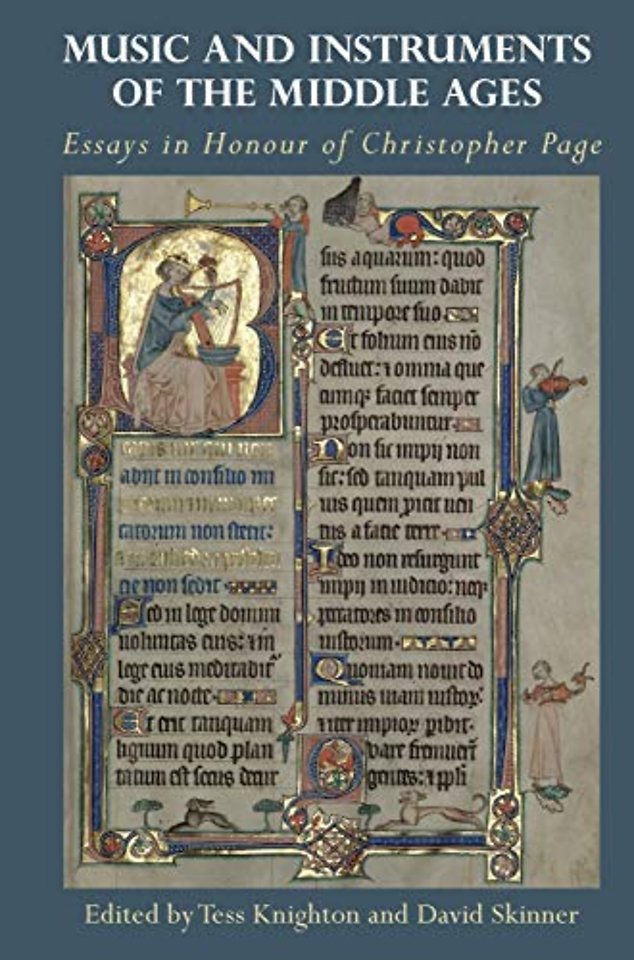 MUSIC AND INSTRUMENTS
OF THE MIDDLE AGES
Essays in Honour of Christopher Page
B
abijt in consilio im
catorum non stetit:
cie non sedit
Sed in lege domini
uoluntas eius: ⁊ in
lege eius meditabit᷑
die ac nocte
Et erit tanquam
lignum quod plan
tatum est secus decur
sus aquarum: quod
fructum suum dabit
in tempore suo
Et folium eius nō
defluet: ⁊ omnia que
cumqꝫ faciet semper
prosperabuntur
Non sic impij non
sic: sed tanquam pul
uis quem ꝓicit uen
tus a facie terre
Ideo non resurgunt
impij in iudicio: neqꝫ
peccatores in consilio
iustorum
Quoniam nouit do
minus uiam iustoꝝ
⁊ iter impioꝝ ꝑibit
Quare fremuerūt
gentes: ⁊ ppli
Edited by Tess Knighton and David Skinner